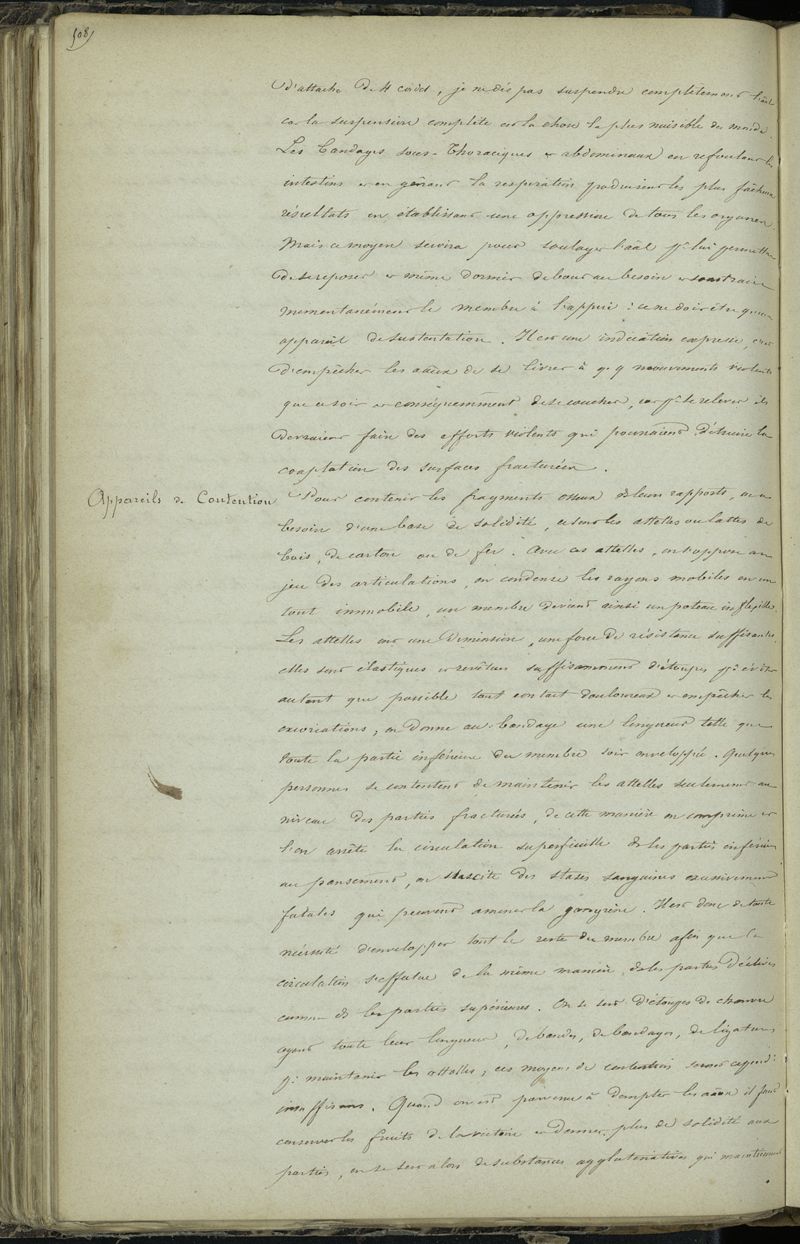 508)
d'attache de 4 cordes, je ne dis pas suspendre complètement l'aāl
car la suspension complète est la chose la plus nuisible du monde.
Les bandages sous-thoraciques et abdominaux en refoulant les
intestins et en gênant la respiration produisent les plus fâcheux
résultats en établissant une oppression de tous les organes.
Mais ce moyen servira pour soulager l'aāl pr lui permettre
de se reposer et même dormir debout au besoin et soustraire
momentanément le membre à l'appui : ce ne doit être qu'un
appareil de sustentation. Il est une indication expresse, c'est
d'empêcher les aāux de se livrer à q.q mouvements violents
que ce soit et conséquemment de se coucher, car pr se relever ils
devraient faire des efforts violents qui pourraient détruire la
coaptation des surfaces fracturées.
Appareils de Contention
Pour contenir les fragments osseux ds leurs rapports, on a
besoin d'une base de solidité, ce sont les attelles ou lattes de
bois, de carton ou de fer. Avec ces attelles, on s'oppose au
jeu des articulations, on condense les rayons mobiles en un
tout immobile, un membre devient ainsi un poteau inflexible.
Les attelles ont une dimension, une force de résistance suffisantes,
elles sont élastiques et revêtues suffisamment d'étoupes pr éviter
autant que possible tout contact douloureux et empêcher les
excoriations ; on donne au bandage une longueur telle que
toute la partie inférieure du membre soit enveloppée. Quelques
personnes se contentent de maintenir les attelles seulement au
niveau des parties fracturées, de cette manière on comprime et
l'on arrête la circulation superficielle ds les parties inférieures
au pansement, on suscite des stases sanguines excessivement
fatales qui peuvent amener la gangrène. Il est donc de toute
nécessité d'envelopper tout le reste du membre afin que la
circulation s'effectue de la même manière ds les parties déclives
comme ds les parties supérieures. On se sert d'étoupes de chanvre
ayant toute leur longueur, de bandes, de bandages, de ligatures
pr maintenir les attelles ; ces moyens de contention seront cepend.t
insuffisans. Quand on est parvenu à dompter les aāux il faut
conserver les fruits de la victoire et donner plus de solidité aux
parties, on se sert alors de substances agglutinatives qui maintiennent